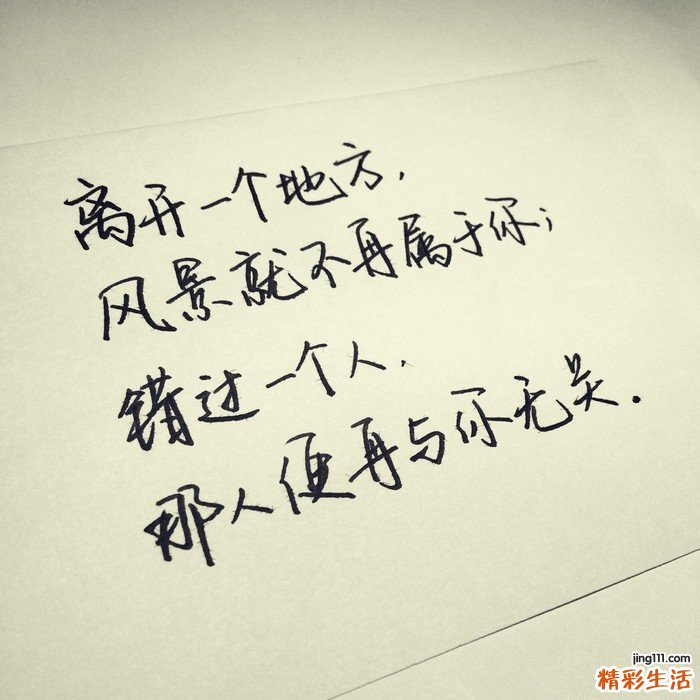 离开一个地方.
风景就不再属于你;
错过一个人.
那人便再与你无关.
jing111.com
精彩生活